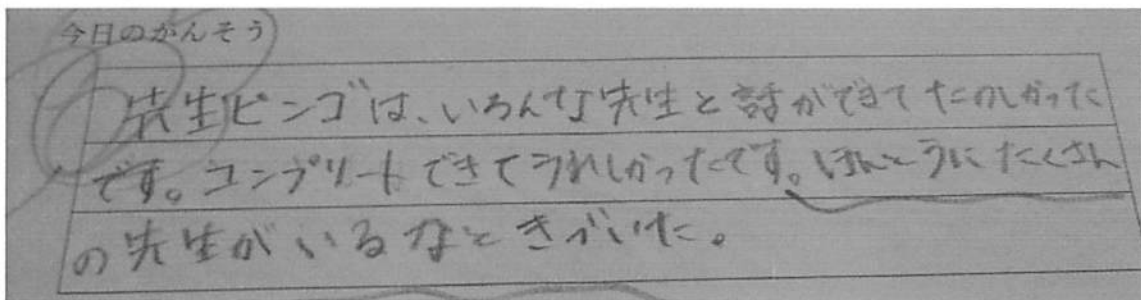 今日のかんそう
先生ビンゴは、いろんな先生と話ができてたのしかった
です。コンプリートできてうれしかったです。ほんとうにたくさん
の先生がいるなときづいた。